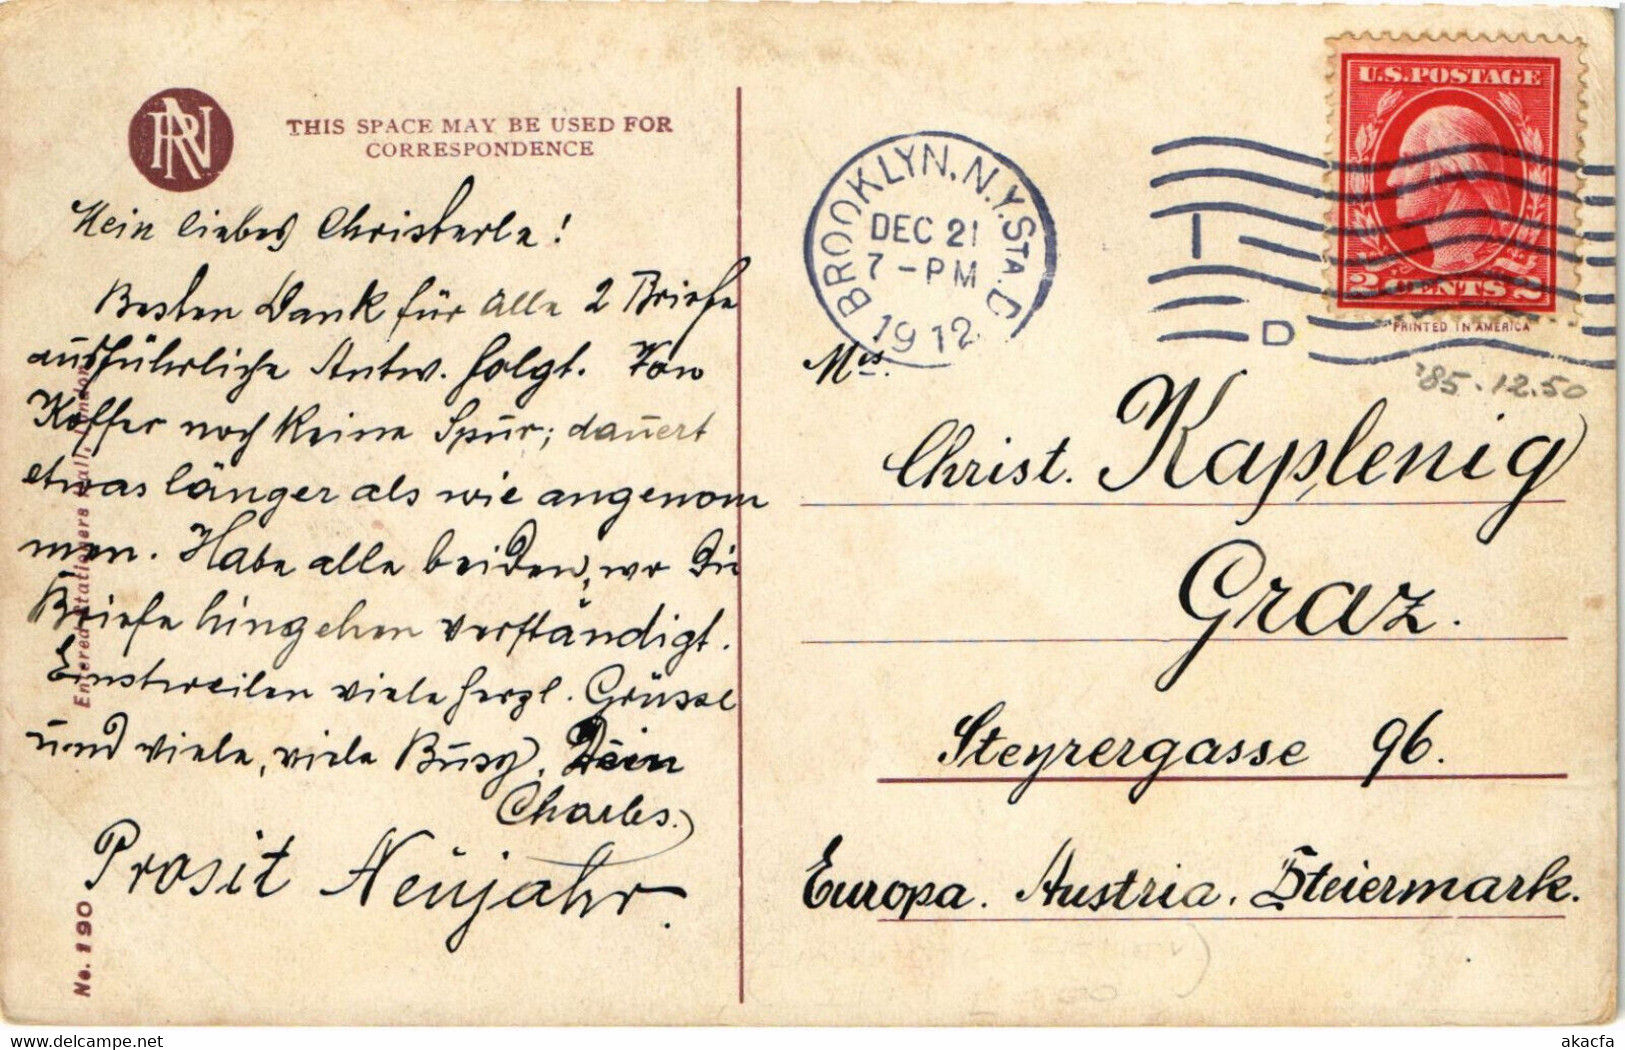 THIS SPACE MAY BE USED FOR
CORRESPONDENCE
Mein liebes Christerle!
Besten Dank für alle 2 Briefe
ausführliche Antw. folgt. Von
Koffer noch keine Spur; dauert
etwas länger als wie angenom
men. Habe alle beiden, wo die
Briefe hingehen verständigt.
Einstweilen viele herzl. Grüsse
und viele, viele Busy. Dein
Charles.
Prosit Neujahr.
No. 190
Entered Stationers Hall, London
BROOKLYN, N.Y. STA. C
DEC 21
7 - PM
1912
D
U.S. POSTAGE
2 CENTS 2
PRINTED IN AMERICA
'85.12.50
Mrs.
Christ. Kaplenig
Graz.
Steyrergasse 96.
Europa. Austria. Steiermark.
akpool.co.uk
akacfa